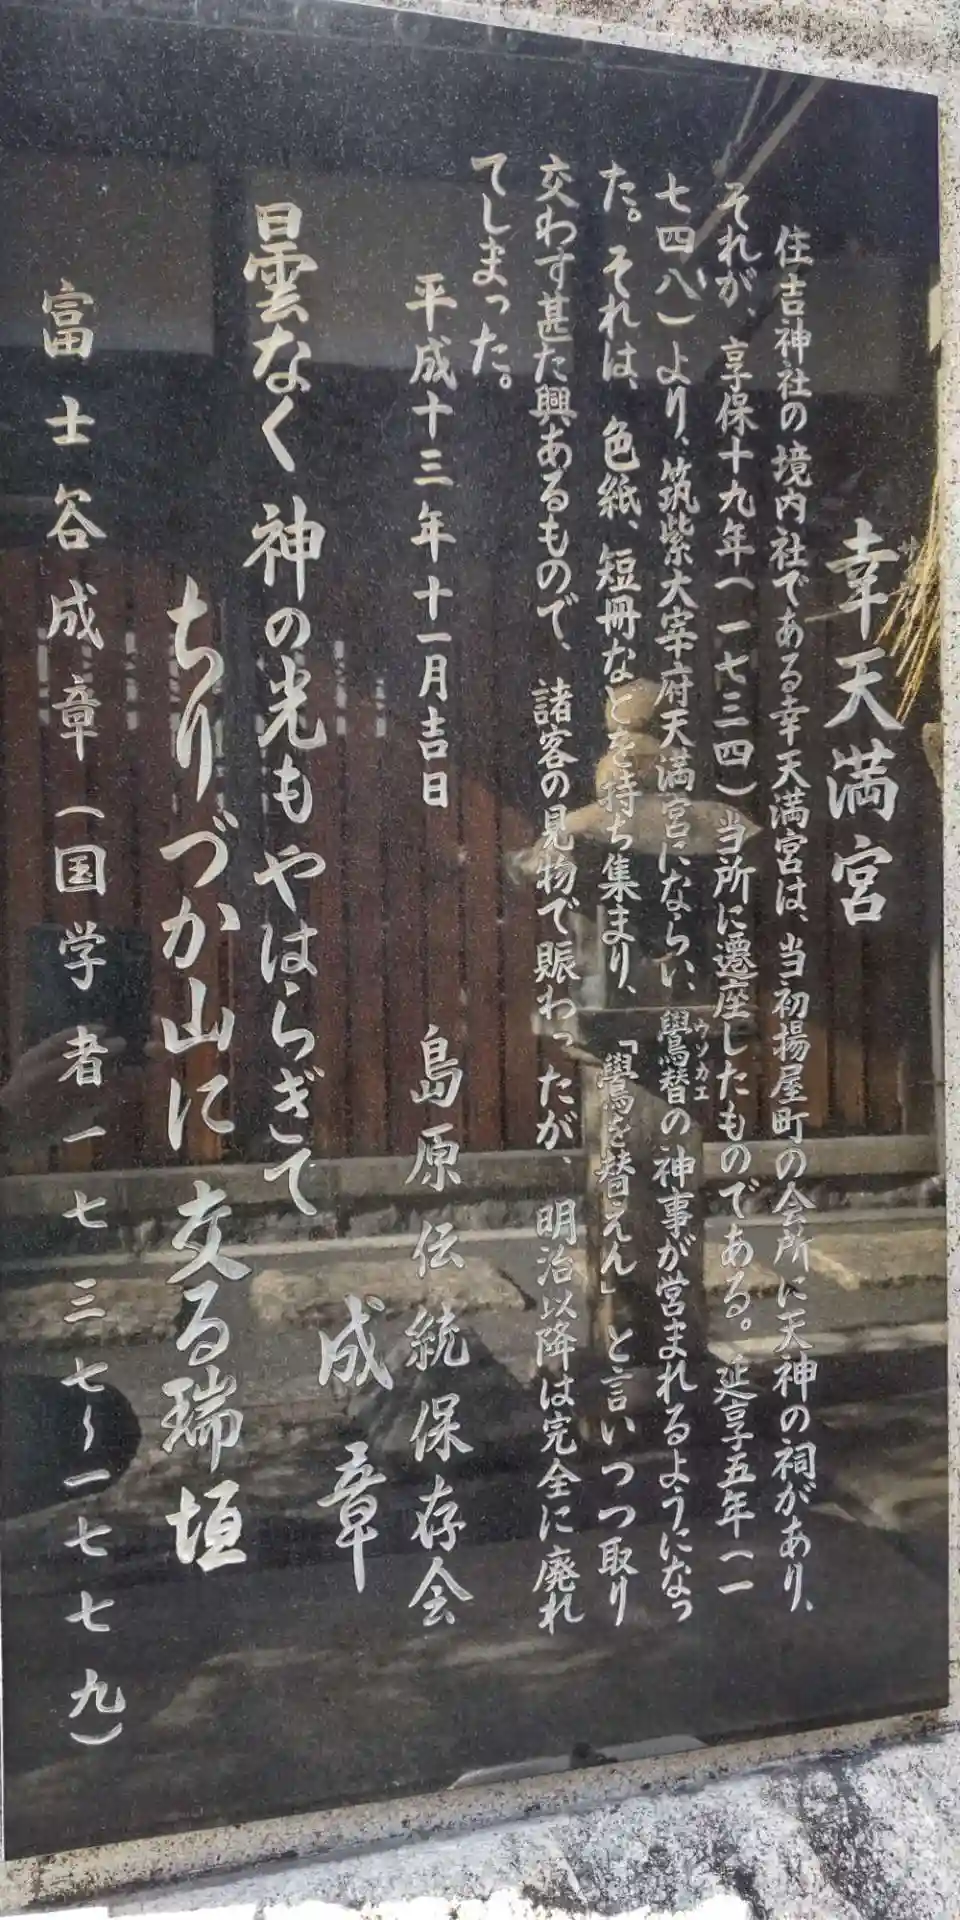 幸天満宮
住吉神社の境内社である幸天満宮は、当初揚屋町の会所に天神の祠があり、
それが、享保十九年(一七三四)当所に遷座したものである。延享五年(一
七四八)より、筑紫大宰府天満宮にならい、鷽替の神事が営まれるようになっ
ウソカエ
た。それは、色紙、短冊などを持ち集まり、「鷽を替えん」と言いつつ取り
交わす甚た興あるもので、諸客の見物で賑わったが、明治以降は完全に廃れ
てしまった。
平成十三年十一月吉日 島原伝統保存会
成章
曇なく神の光もやはらぎて
ちりづか山に交る瑞垣
富士谷成章(国学者一七三七〜一七七九)